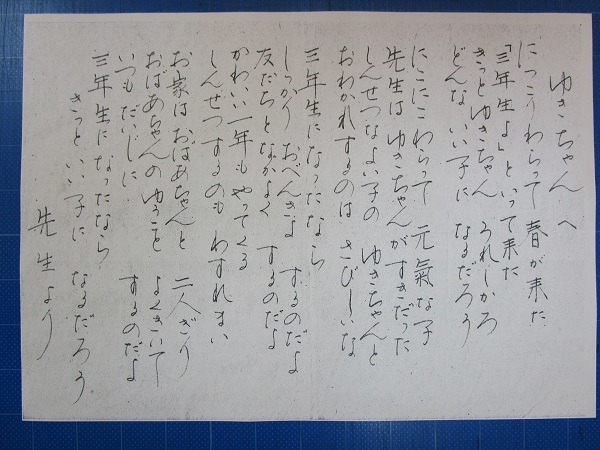 ゆきちゃんへ
にっこりわらって 春が来た
「三年生よ」といって来た
きっとゆきちゃん うれしかろ
どんないい子に なるだろう
にこにこわらって 元氣な子
先生はゆきちゃんがすきだった
しんせつなよい子の ゆきちゃんと
おわかれするのは さびしいな
三年生になったなら
しっかり おべんきよ するのだよ
友だちとなかよく するのだよ
かわいい一年もやってくる
しんせつするのも わすれまい
お家はおばあちゃんと 二人ぎり
おばあちゃんのゆうこと よくきいて
いつもだいじに するのだよ
三年生になったなら
きっといい子に なるだろう
先生より